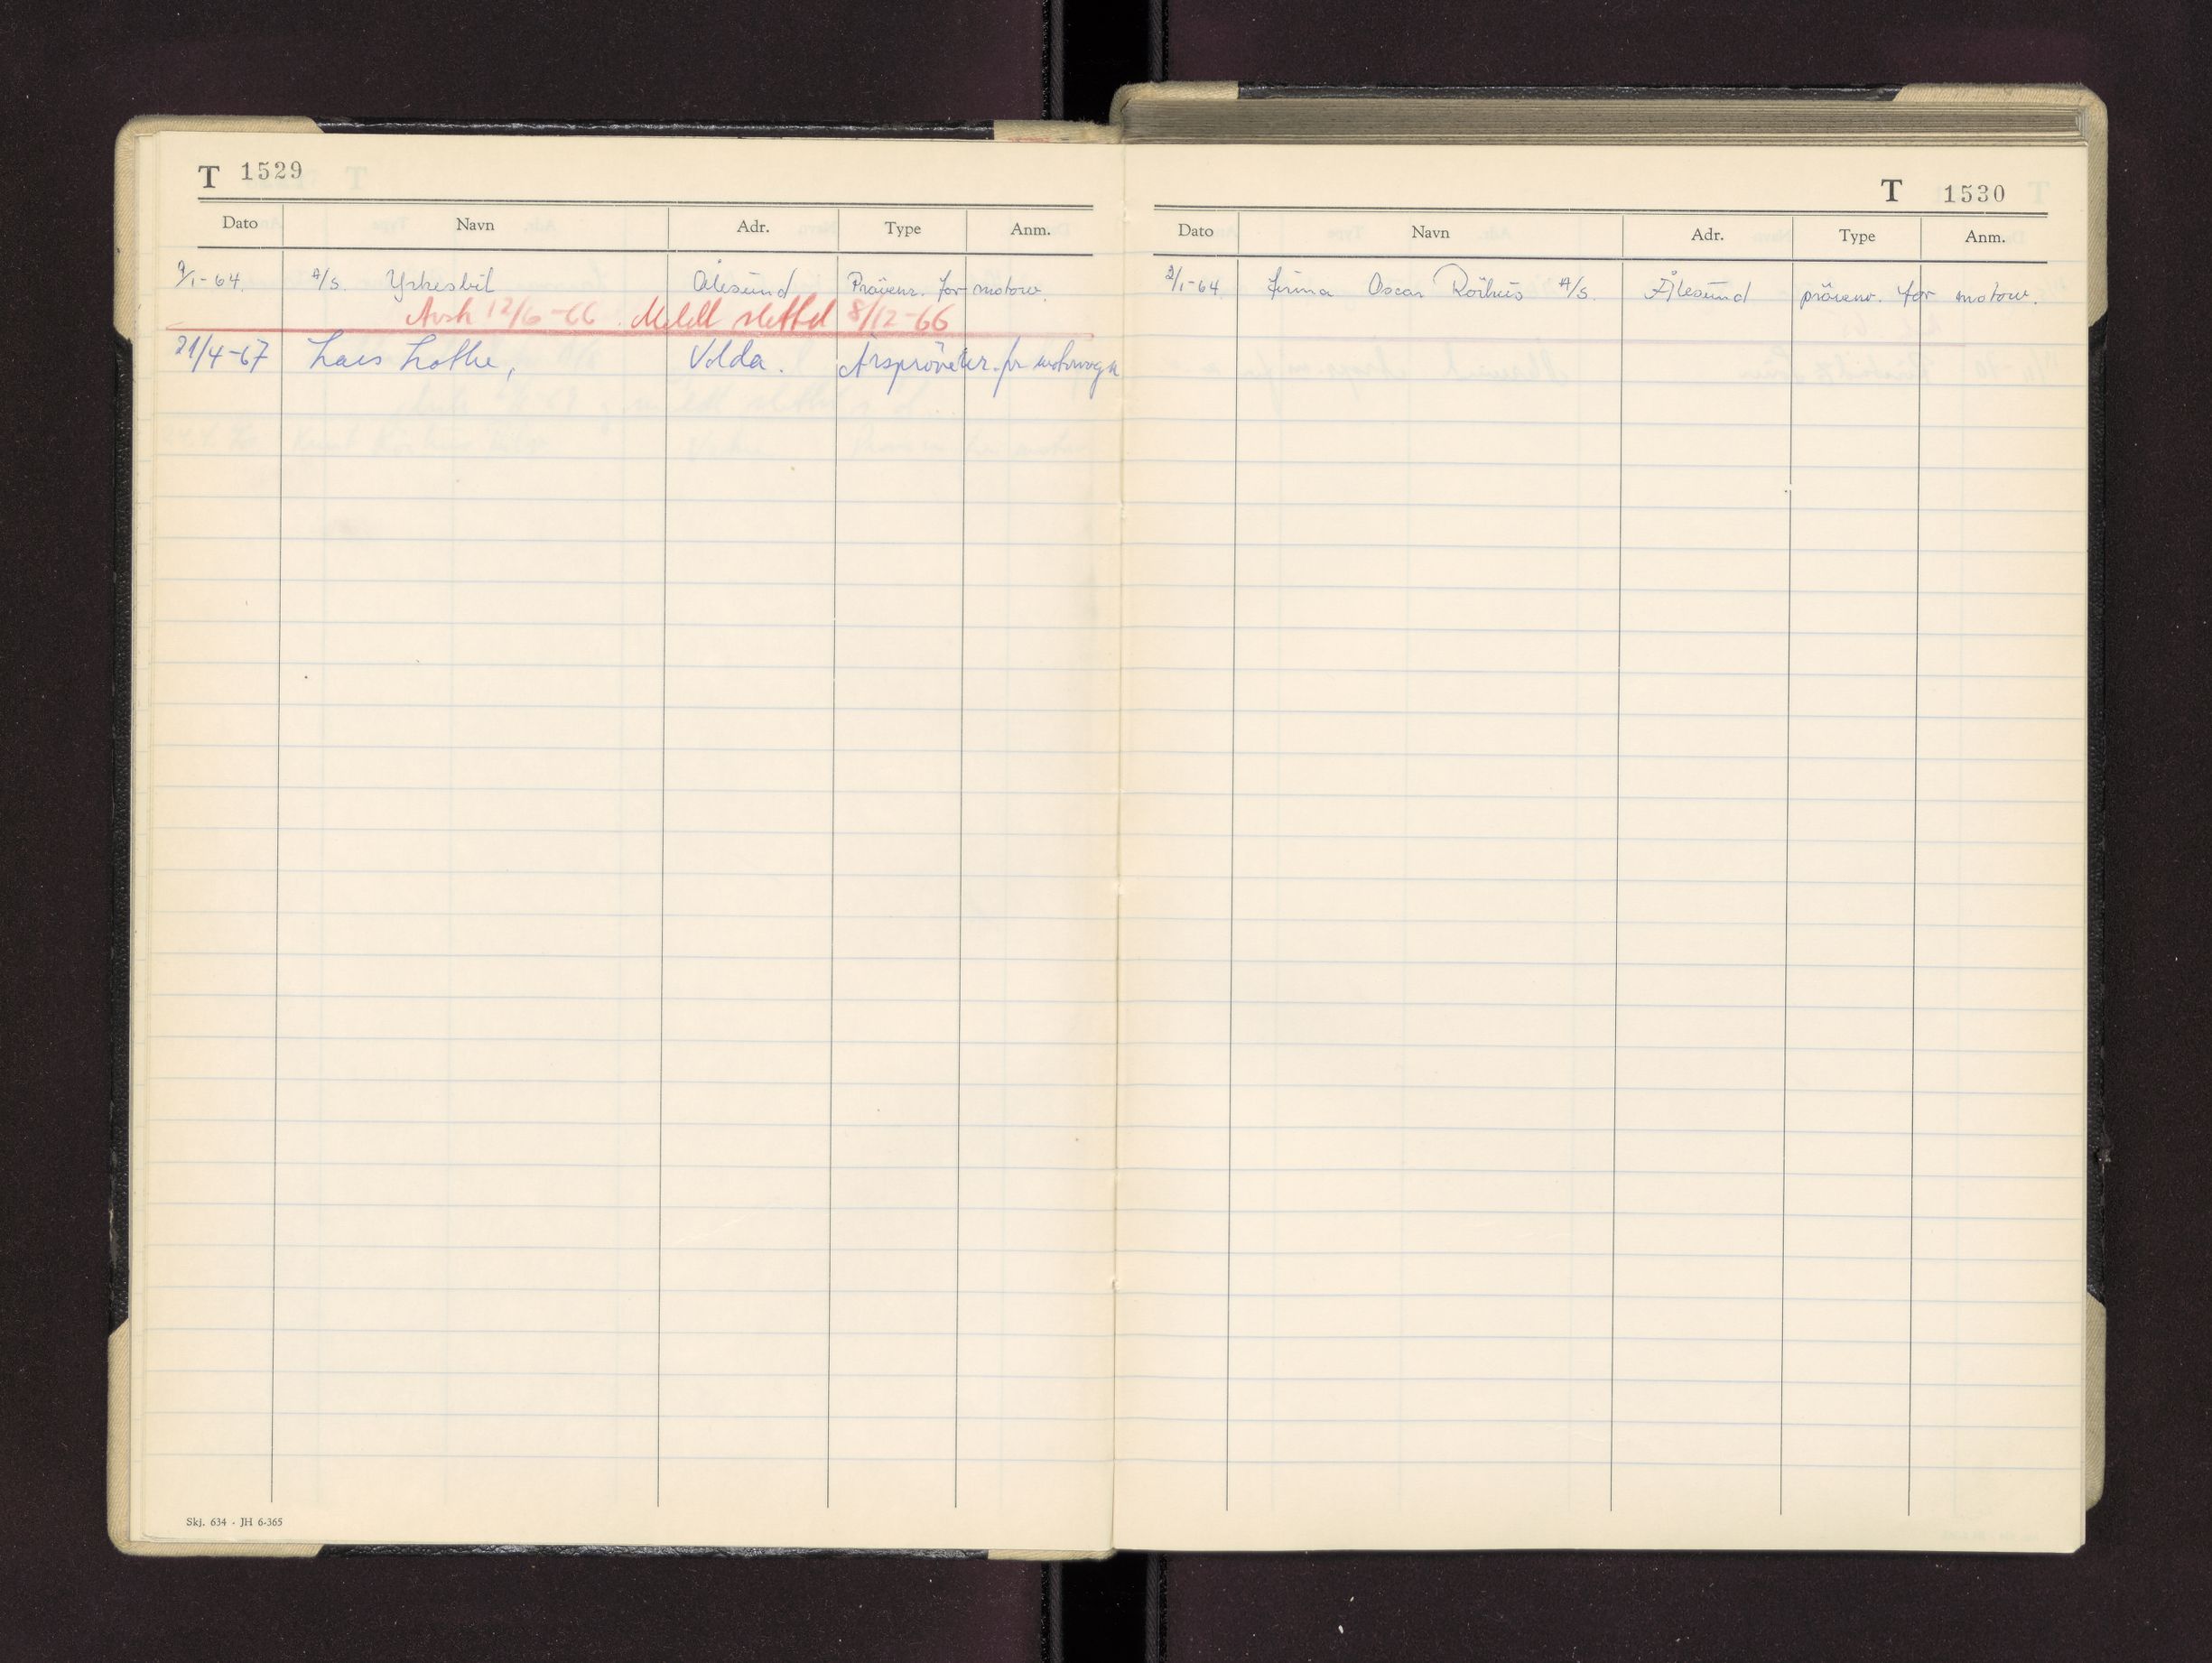 T 1529
Dato Navn Adr. Type Anm.
9/1-64. A/S. Yrkesbil Ålesund Prövenr. for motorv.
Avsk 12/6-66. Meldt slettet 8/12-66
21/4-67 Lars Lothe, Volda. Årsprövekr. for motorvogn
Skj. 634 - JH 6-365
T 1530
Dato Navn Adr. Type Anm.
2/1-64 firma Oscar Rörhus A/S. Ålesund prövenr. for motorv.